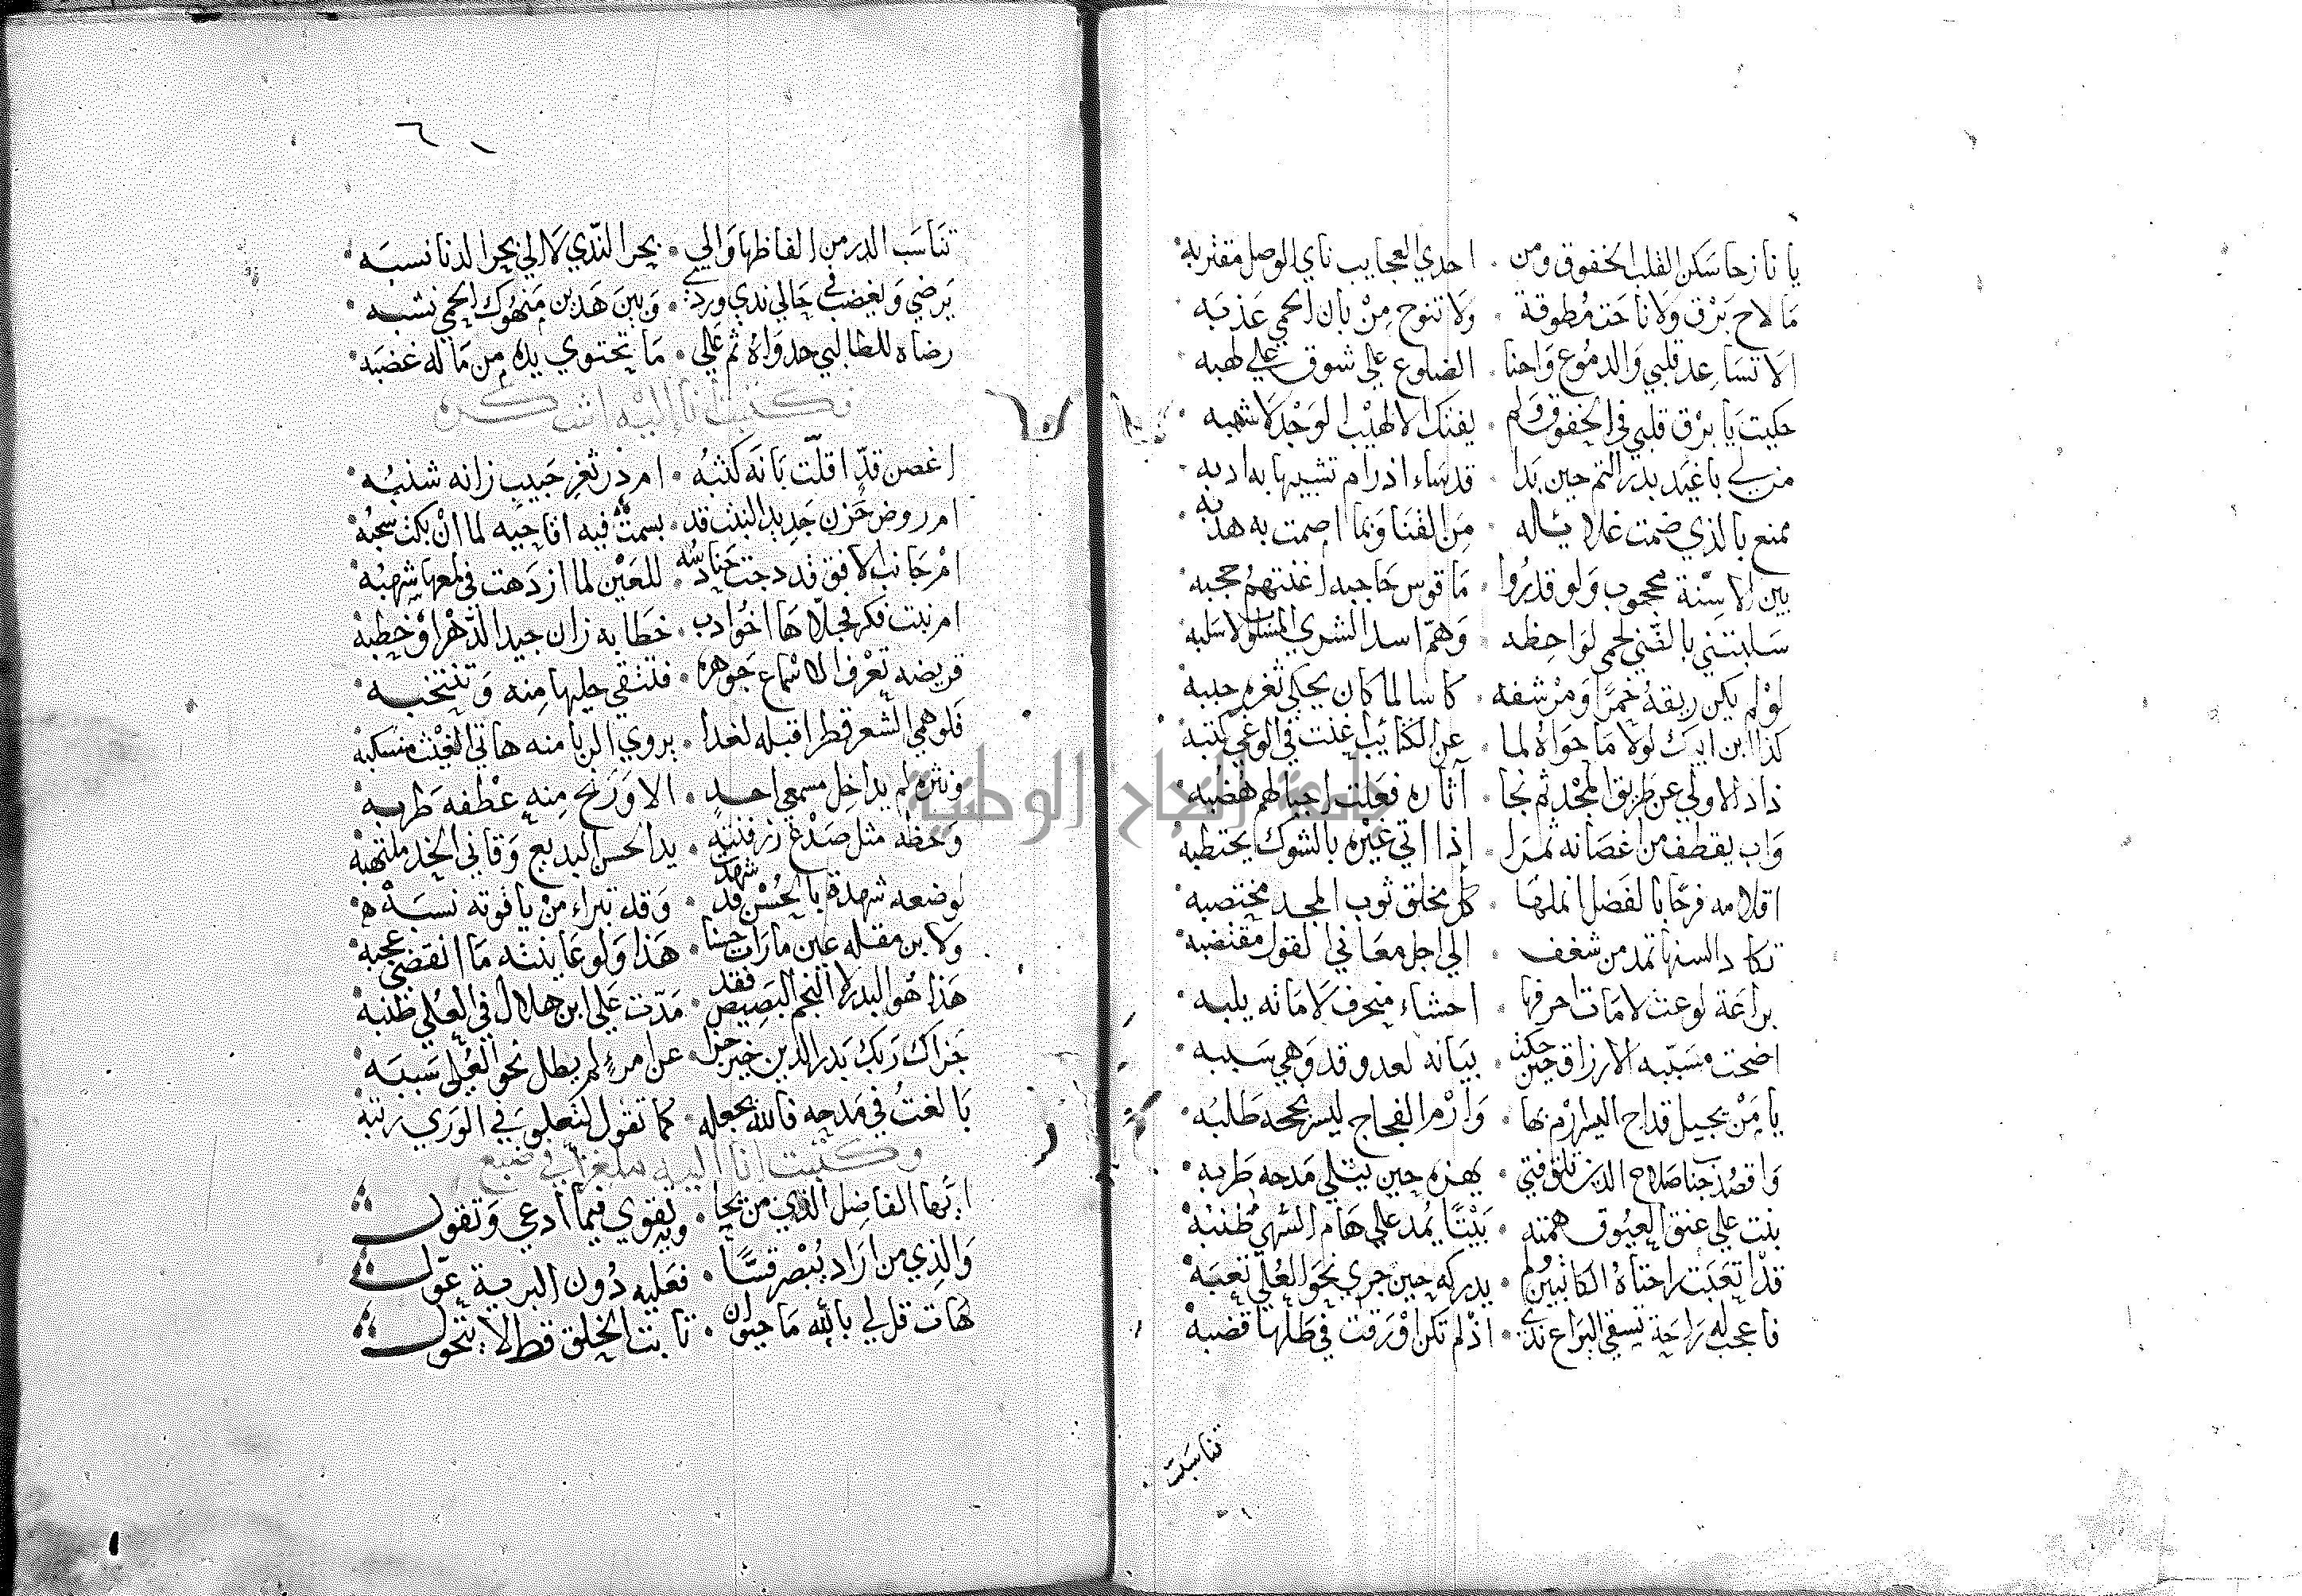 يا نازحا سكن القلب الخفوق ومن . احدي العجايب ناي الوصل مقتربه
ما لاح برق ولا ناحت مطوقة . ولا تنوح من بان الحمي عذبه
الا تساعد قلبي والدموع واحنا . الضلوع علي شوق علي لهبه
حكيت يا برق قلبي في الخفوق ولم . يفتك الا لهيب الوجد لا شهبه
من لي باغيد بدر التم حين بدا . قد ساء اذ رام تشبيها به ادبه
ممنع بالذي ضمت غلايله . من القنا وبما اصمت به هدبه
بين الاسنة محجوب ولو قدروا . ما قوس حاجبه اغنتهم حجبه
سلبنني بالقني لحمي لواحظه . وهم اسد الشري المسلوب لا سلبه
لو لم يكن ريقه خمرا ومرشفه . كاسا لما كان يحكي ثغره حببه
كذا ابن ايبك لولا ما حواه لما . عن الكتايب اغنت في الوغي كتبه
ذاد الاولي عن طريق المجد ثم نجا . آثاره فعلت اجبالهم هضبه
واب يقطف من اغصانه ثمرا . اذا اتي غيره بالشوك يحتطبه
اقلامه فرحا بالفضل انملها . كل مخلق ثوب المجد مختضبه
تكاد السنها تمد من شغف . الي اجل معاني القول مقتضبه
براعة لو عث لامات احرفها . احشاء منحرف لاماته يلبه
اضحت مسببه الارزاق حين حكت . بيانه لعدو قد وهي سببه
يا من يجيل قداح الميسر ارم بها . وارم الفجاج ليسر نجحه طلبه
واقصد جنا صلاح الدين تلق فتي . يهزه حين يتلي مدحه طربه
بنت علي عنق العيوق همته . بيتا يمد علي هام السهي طنبه
قد اتعبت راحتاه الكاتبين ولم . يدركه حين جري نحو العلي تعبه
فاعجب له راحة تسقي اليراع ندي . اذ لم تكن اورقت في ظلها قضبه
تناسب
٦١
تناسب الدر من الفاظها والي . بحر الندي لا الي بحر الدنا نسبه
يرضي ويغضب في حالي ندي وردي . وبين هدين منهوك الحمي نشبه
رضاه للطالبي جدواه ثم علي . ما تحتوي يده من ماله غضبه
فكتبت انا اليه اشكره
اغصن قد اقلت بانه كثبه . ام در ثغر حبيب زانه شنبه
ام روض حزن جديد النبت قد . بسمت فيه اقاحيه لما ان بكت سحبه
ام جانب الافق قد دجت حنادسه . للعين لما ازدهت في لمعها شهبه
ام بنت فكر جلاها اخو ادب . خطابه زان جيد الدهر او خطبه
قريضه تعرف الاسماع جوهره . فتنتقي حليها منه وتنتخبه
فلو همي الشعر قطرا قبله لغدا . يروي الربا منه هاني الغيث منسكبه
ونثره لم يداخل مسمعي احد . الا ورنح منه عطفه طربه
وخطه مثل صدغ زرفنته . يد الحسن البديع وقاني الخد ملتهبه
لوضعه شهدة بالحسن قد شهدت . وقد تبراء من ياقوته نسبه
ولابن مقله عين ما رات حسنا . هذا ولو عاينته ما انقضي عجبه
هذا هو البدر لا النجم البصيص فقد . مدت علي ابن هلال في العلي طنبه
جزاك ربك بدر الدين خير جزا . عن امرء لم يطل نحو العلي سببه
بالغت في مدحه فالله يجعله . كما تقول لتعلو في الوري رتبه
وكتبت انا اليه ملغزا في ضبع
ايها الفاضل الذي من نحا . وبه تقوي فيما ادعي وتقول
والذي من اراد يبصر قسا . فعليه دون البرية عول
هات قل لي بالله ما حيوان . ثابت الخلق قط لا يتحول